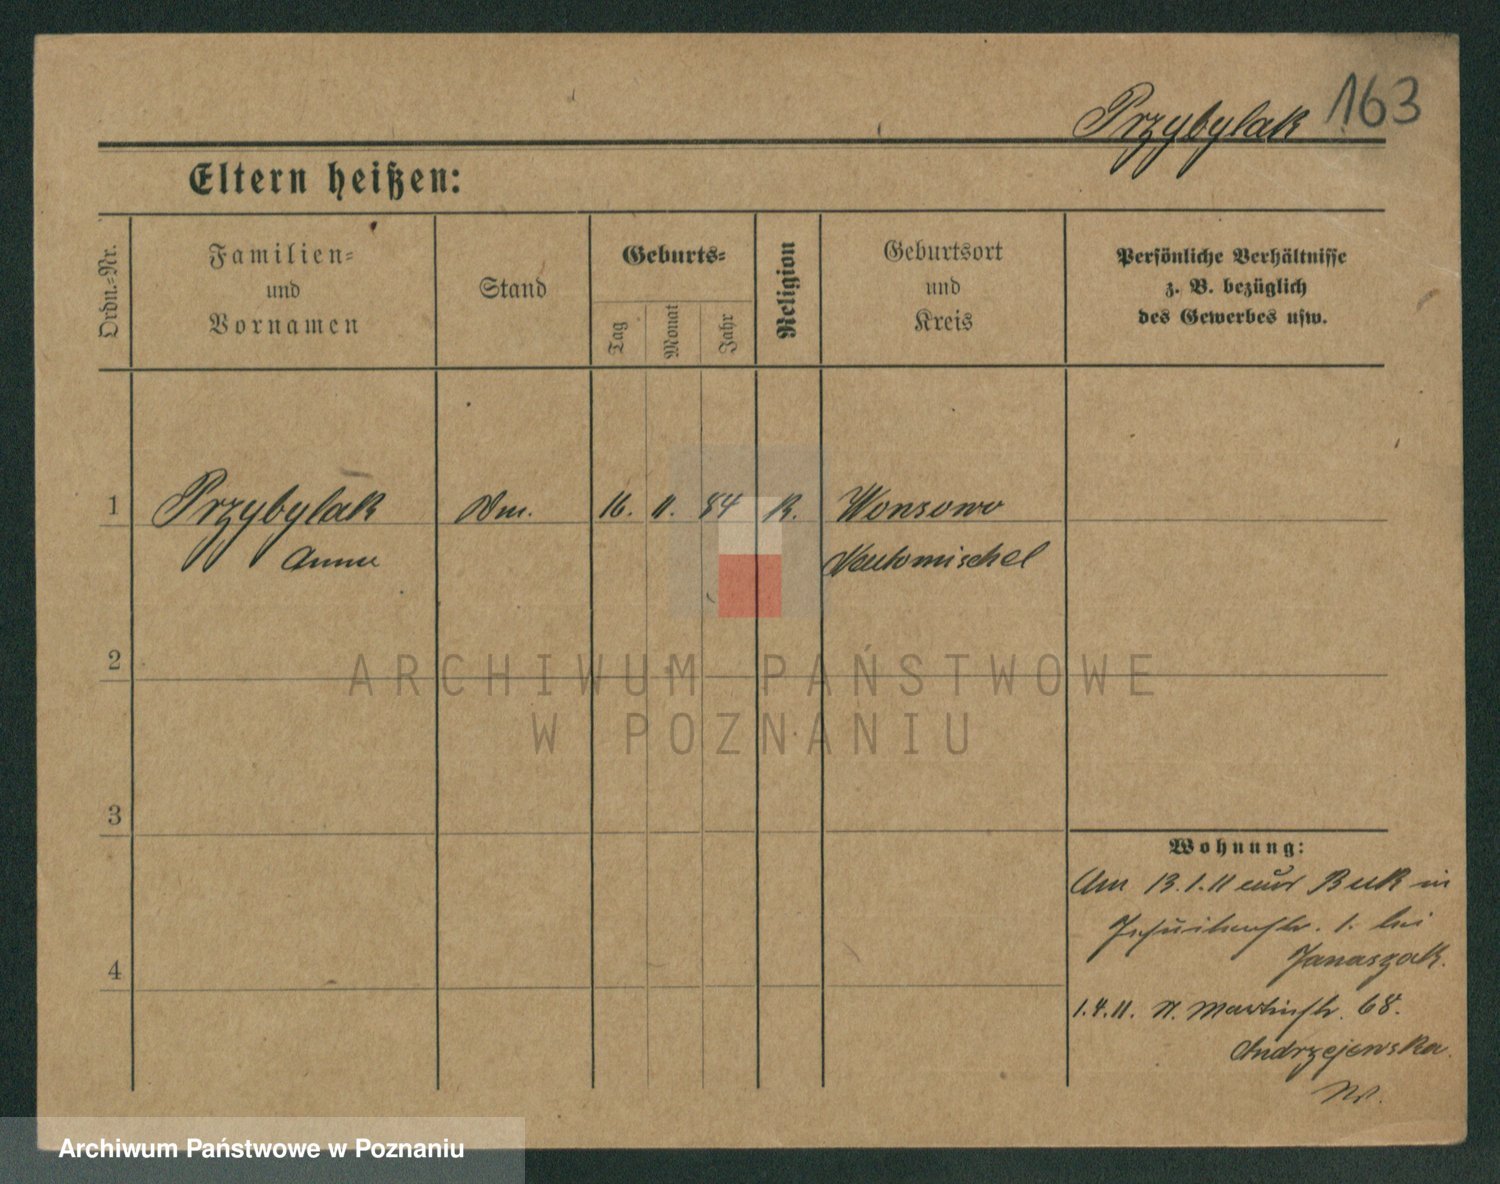 Przybylak 163
Eltern heißen:
Ordn.-Nr.
Familien-
und
Vornamen
Stand
Geburts-
Tag
Monat
Jahr
Religion
Geburtsort
und
Kreis
Persönliche Verhältnisse
z. B. bezüglich
des Gewerbes usw.
1 Przybylak 16. 11. 84 K. Wonsowo
Anna Neutomischel
2
ARCHIWUM PAŃSTWOWE
W POZNANIU
3
Wohnung:
Am 13.1.11 Buk in
Jesuitenstr. 1. bei
Janaszak.
4
1.4.11. St. Martinstr. 68.
Andrzejewska.
Archiwum Państwowe w Poznaniu